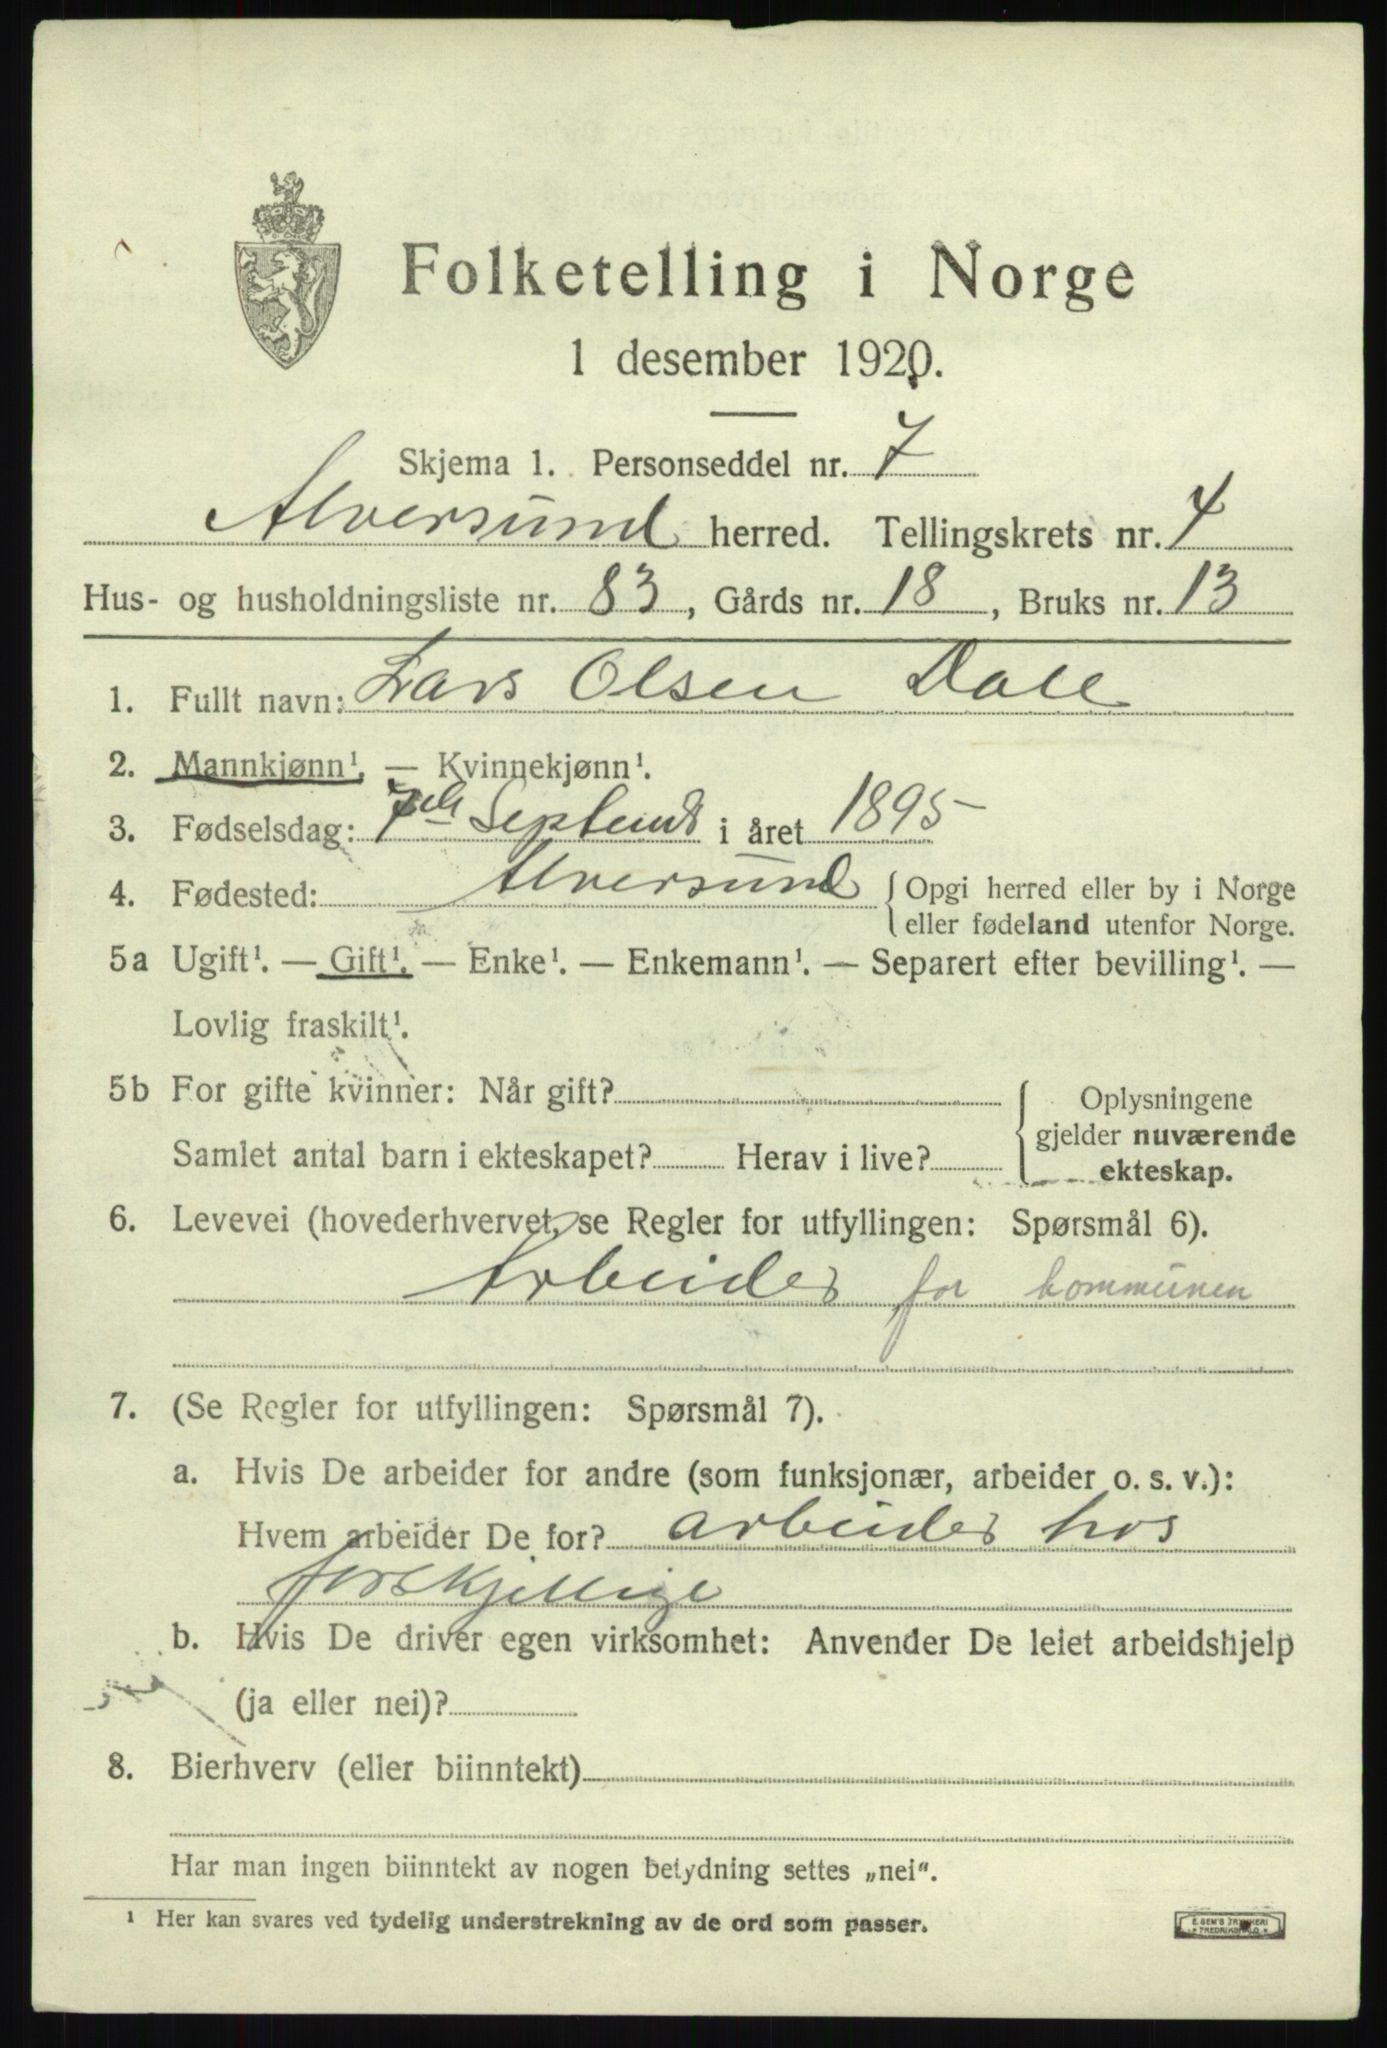 Folketelling i Norge
1 desember 1920.
Skjema 1. Personseddel nr. 7
Alversund herred. Tellingskrets nr. 4
Hus- og husholdningsliste nr. 83, Gårds nr. 18, Bruks nr. 13
1. Fullt navn: Lars Olsen Dale
2. Mannkjønn¹. — Kvinnekjønn¹.
3. Fødselsdag: 7de Septemb i året 1895
4. Fødested: Alversund { Opgi herred eller by i Norge
eller fødeland utenfor Norge.
5a Ugift¹. — Gift¹. — Enke¹. — Enkemann¹. — Separert efter bevilling¹. —
Lovlig fraskilt¹.
5b For gifte kvinner: Når gift? { Oplysningene
gjelder nuværende
Samlet antal barn i ekteskapet? Herav i live?
ekteskap.
6. Levevei (hovederhvervet, se Regler for utfyllingen: Spørsmål 6).
Arbeider for kommunen
7. (Se Regler for utfyllingen: Spørsmål 7).
a. Hvis De arbeider for andre (som funksjonær, arbeider o. s. v.):
Hvem arbeider De for? arbeider hos
forskjellige
b. Hvis De driver egen virksomhet: Anvender De leiet arbeidshjelp
(ja eller nei)?
8. Bierhverv (eller biinntekt)
Har man ingen biinntekt av nogen betydning settes „nei".
¹ Her kan svares ved tydelig understrekning av de ord som passer.